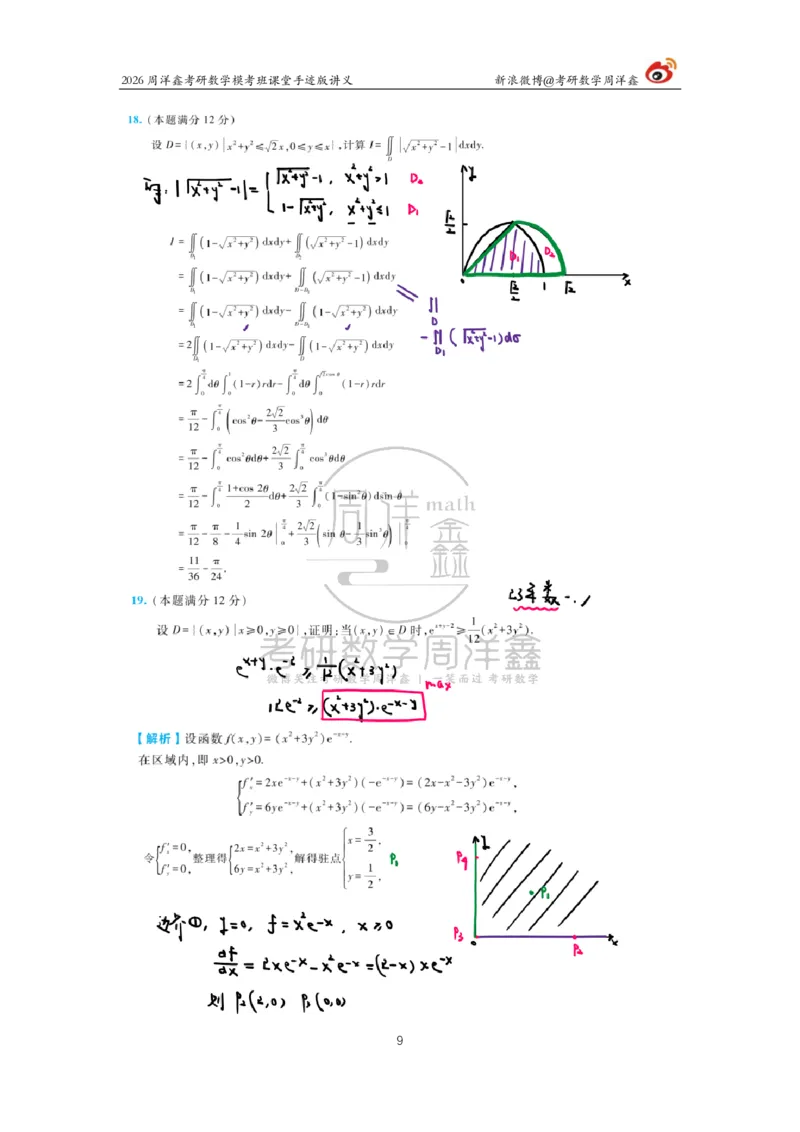 2026周洋鑫考研数学模考班课堂手迹版讲义 新浪微博@考研数学周洋鑫
18.(本题满分12分)
设 D={(x,y)|x²+y²≤√2x,0≤y≤x},计算 I=∬_D |√(x²+y²)-1|dxdy.
|√(x²+y²)-1|= { √(x²+y²)-1, x²+y²>1 D₂
1-√(x²+y²), x²+y²≤1 D₁
y √2/2 D₁ D₂ 0 √2/2 1 √2 x
I=∬_{D₁}(1-√(x²+y²))dxdy+∬_{D₂}(√(x²+y²)-1)dxdy
=∬_{D₁}(1-√(x²+y²))dxdy+∬_{D-D₁}(√(x²+y²)-1)dxdy
=∬_{D₁}(1-√(x²+y²))dxdy-∬_{D-D₁}(1-√(x²+y²))dxdy
∬_D
-∬_{D₁}(√(x²+y²)-1)dσ
=2∬_{D₁}(1-√(x²+y²))dxdy-∬_D(1-√(x²+y²))dxdy
=2∫_0^{π/4}dθ∫_0^1(1-r)rdr-∫_0^{π/4}dθ∫_0^{√2cosθ}(1-r)rdr
=π/12-∫_0^{π/4}(cos²θ-(2√2/3)cos³θ)dθ
=π/12-∫_0^{π/4}cos²θdθ+(2√2/3)∫_0^{π/4}cos³θdθ
=π/12-∫_0^{π/4}(1+cos 2θ)/2 dθ+(2√2/3)∫_0^{π/4}(1-sin²θ)dsin θ
=π/12-π/8-(1/4)sin 2θ|_0^{π/4}+(2√2/3)(sin θ-(1/3)sin³θ)|_0^{π/4}
=11/36-π/24.
周洋鑫 math
19.(本题满分12分)
设 D={(x,y)|x≥0,y≥0},证明:当(x,y)∈D时,e^{x+y-2}≥(1/12)(x²+3y²).
考研数学周洋鑫
e^{x+y}·e^{-2}≥(1/12)(x²+3y²)
微博关注考研数学周洋鑫 | 一笑而过 考研数学
12e^{-2}≥(x²+3y²)·e^{-x-y} max
【解析】设函数f(x,y)=(x²+3y²)e^{-x-y}.
在区域内,即x>0,y>0.
{ f'_x=2xe^{-x-y}+(x²+3y²)(-e^{-x-y})=(2x-x²-3y²)e^{-x-y},
f'_y=6ye^{-x-y}+(x²+3y²)(-e^{-x-y})=(6y-x²-3y²)e^{-x-y},
令{f'_x=0, f'_y=0, 整理得{2x=x²+3y², 6y=x²+3y², 解得驻点{x=3/2, y=1/2, P₁
y P₄ P₁ P₃ 0 P₂ x
边界①, y=0, f=x²e^{-x}, x≥0
df/dx=2xe^{-x}-x²e^{-x}=(2-x)xe^{-x}
则 P₂(2,0) P₃(0,0)
9